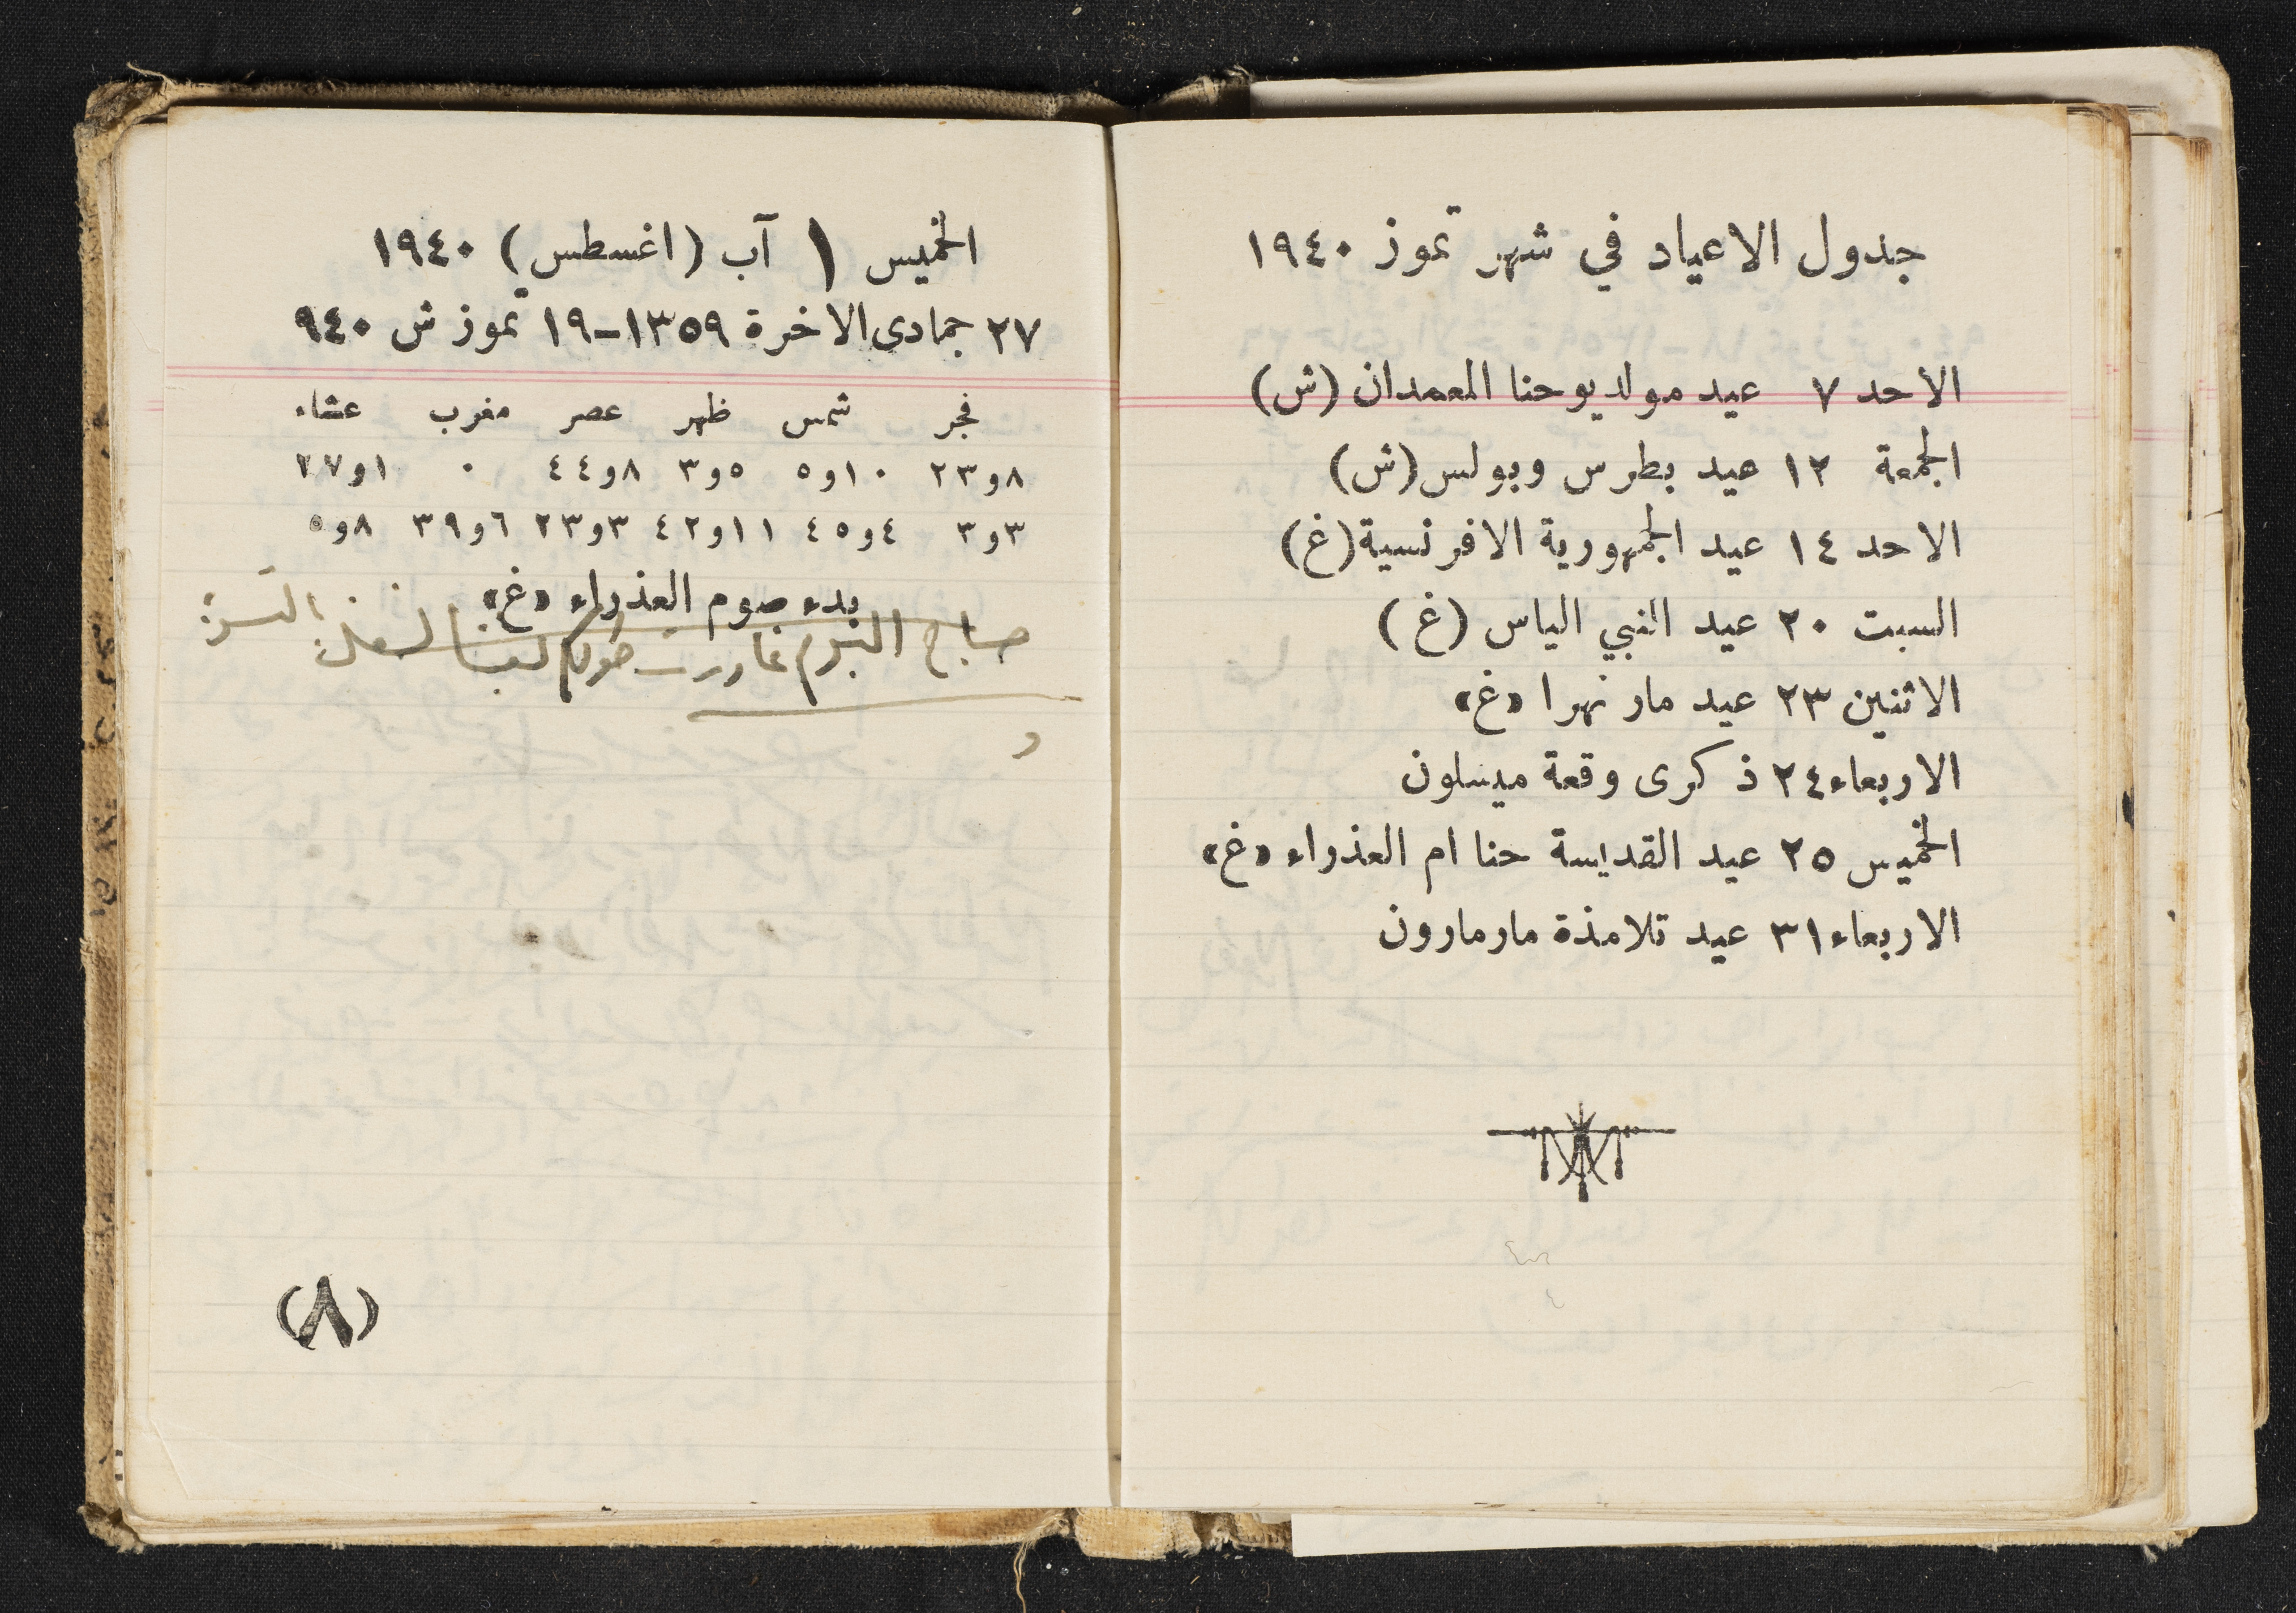 جدول الاعياد في شهر تموز ١٩٤٠
الاحد ٧ عيد مولد يوحنا المعمدان (ش)
الجمعة ١٢ عيد بطرس وبولس (ش)
الاحد ١٤ عيد الجمهورية الافرنسية (غ)
السبت ٢٠ عيد النبي الياس (غ)
الاثنين ٢٣ عيد مار نهرا «غ»
الاربعاء ٢٤ ذكرى وقعة ميسلون
الخميس ٢٥ عيد القديسة حنا ام العذراء «غ»
الاربعاء ٣١ عيد تلامذة مار مارون
الخميس ١ آب (اغسطس) ١٩٤٠
٢٧ جمادى الاخرة ١٣٥٩-١٩ تموز ش ٩٤٠
فجر شمس ظهر عصر مغرب عشاء
٨و٢٣ ١٠و٥ ٥و٣ ٨و٤٤ ٠ ١و٢٧
٣و٣ ٤و٤٥ ١١و٤٢ ٣و٢٣ ٦و٣٩ ٨و٥
بدء صوم العذراء «غ»
صباح اليوم غادرت
(٨)